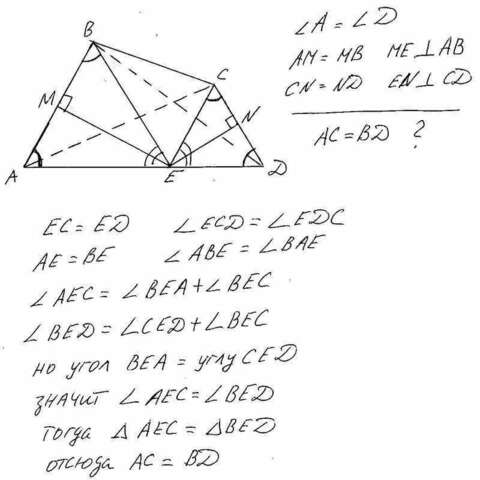 B
C
M
N
A
E
D
∠A = ∠D
AM = MB ME ⊥ AB
CN = ND EN ⊥ CD
AC = BD ?
EC = ED ∠ECD = ∠EDC
AE = BE ∠ABE = ∠BAE
∠AEC = ∠BEA + ∠BEC
∠BED = ∠CED + ∠BEC
но угол BEA = углу CED
значит ∠AEC = ∠BED
тогда △AEC = △BED
отсюда AC = BD